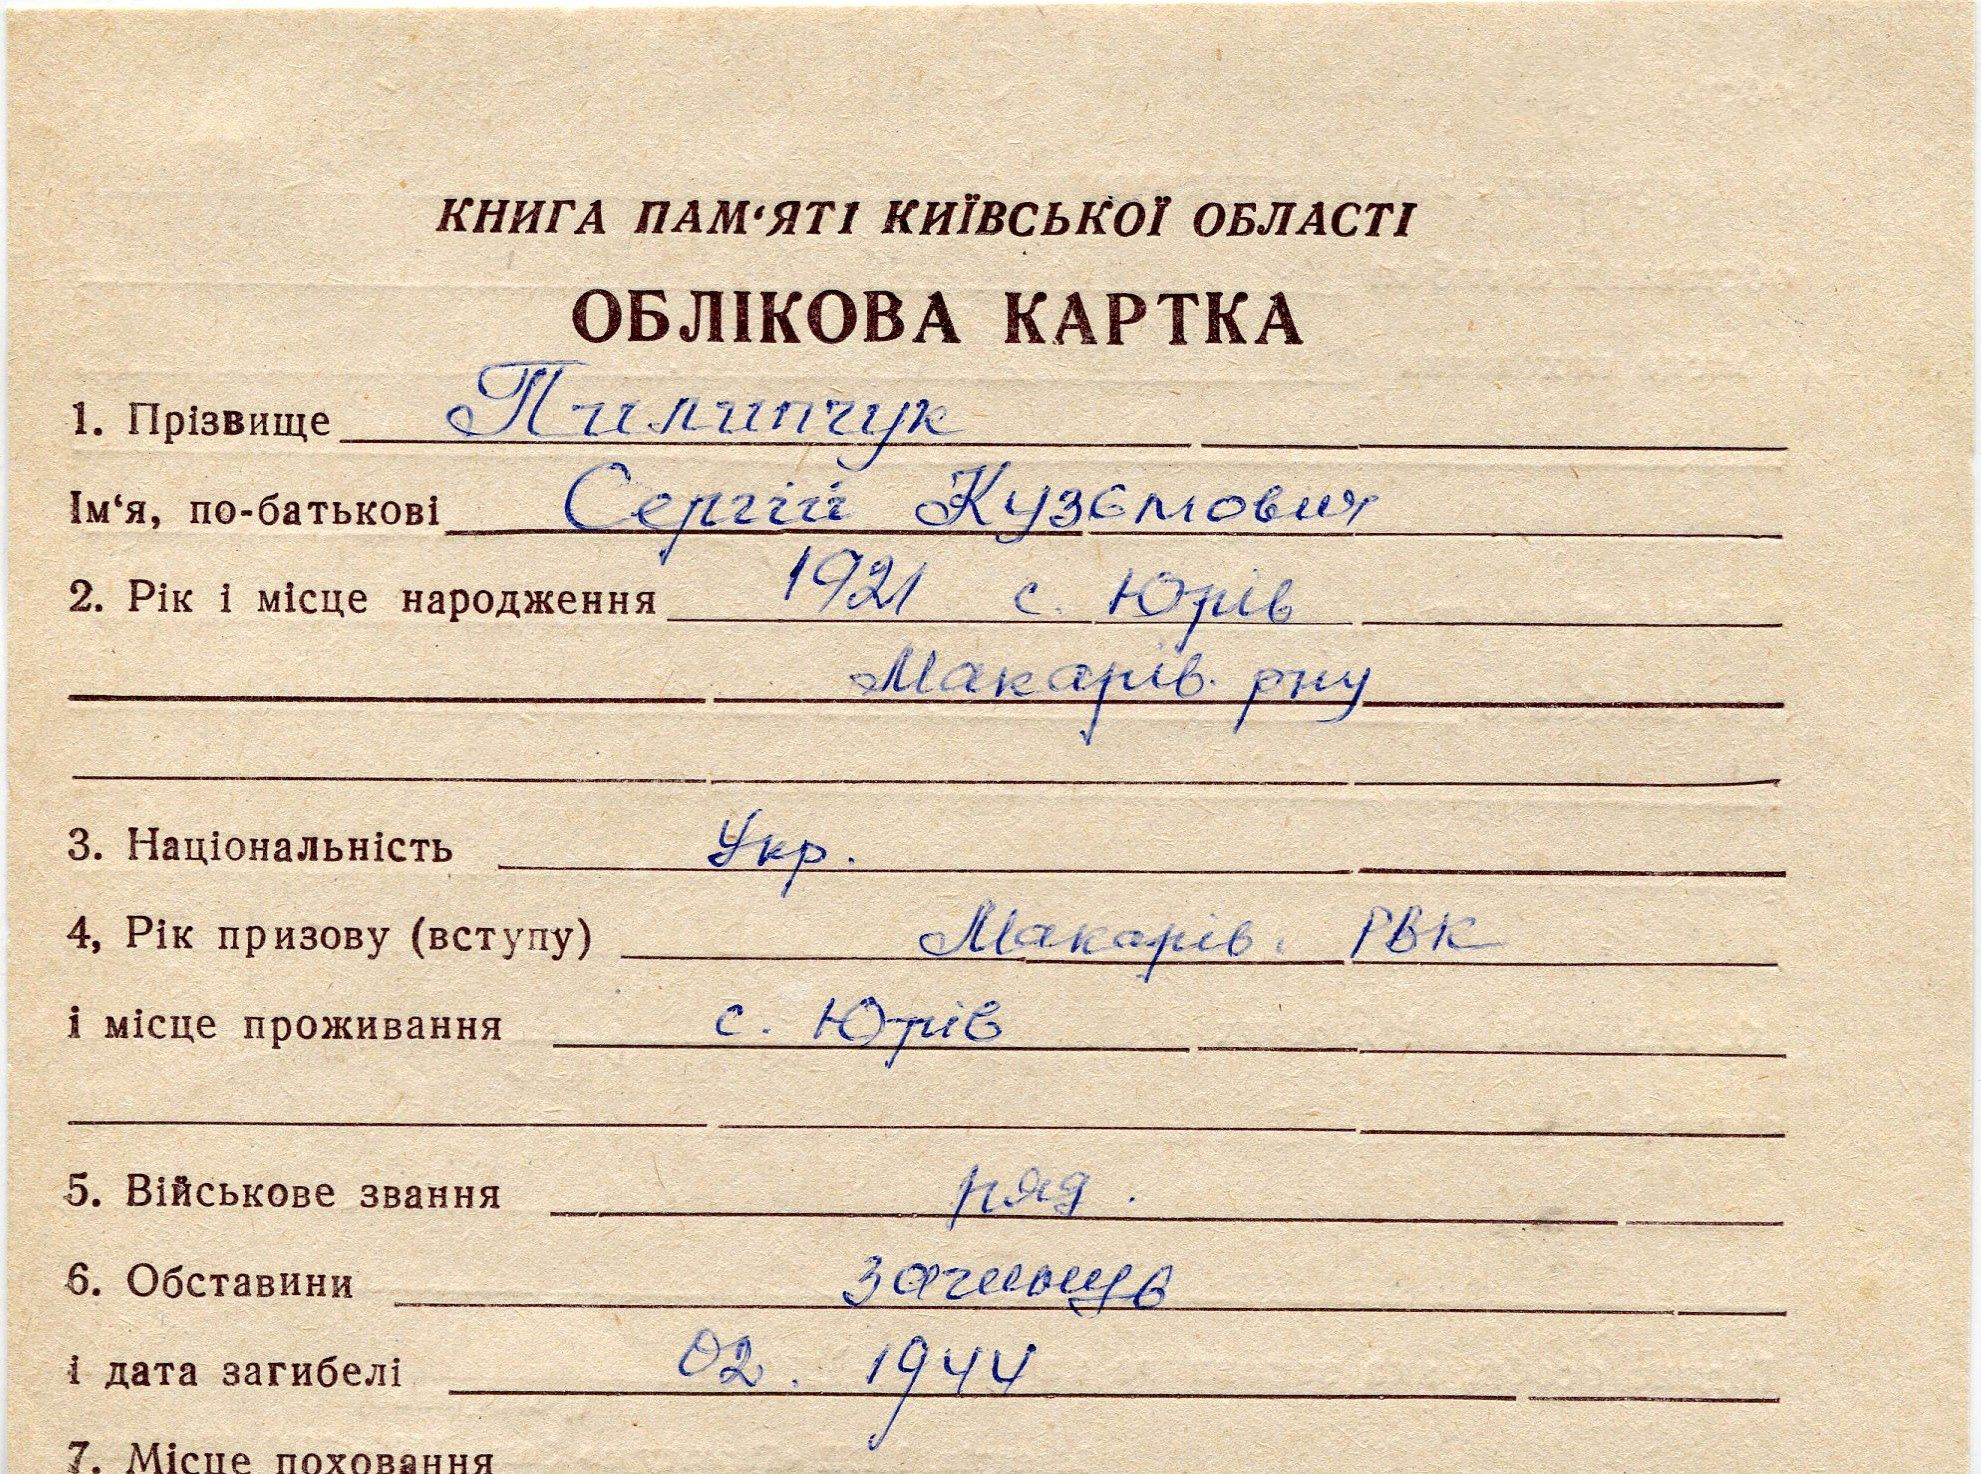 КНИГА ПАМ‘ЯТІ КИЇВСЬКОЇ ОБЛАСТІ
ОБЛІКОВА КАРТКА
1. Прізвище Пилипчук
Ім‘я, по-батькові Сергій Кузьмович
2. Рік і місце народження 1921 с. Юрів
Макарів. рну
3. Національність Укр.
4, Рік призову (вступу) Макарів. РВК
і місце проживання с. Юрів
5. Військове звання ряд.
6. Обставини
і дата загибелі 02. 1944
7. Місце поховання